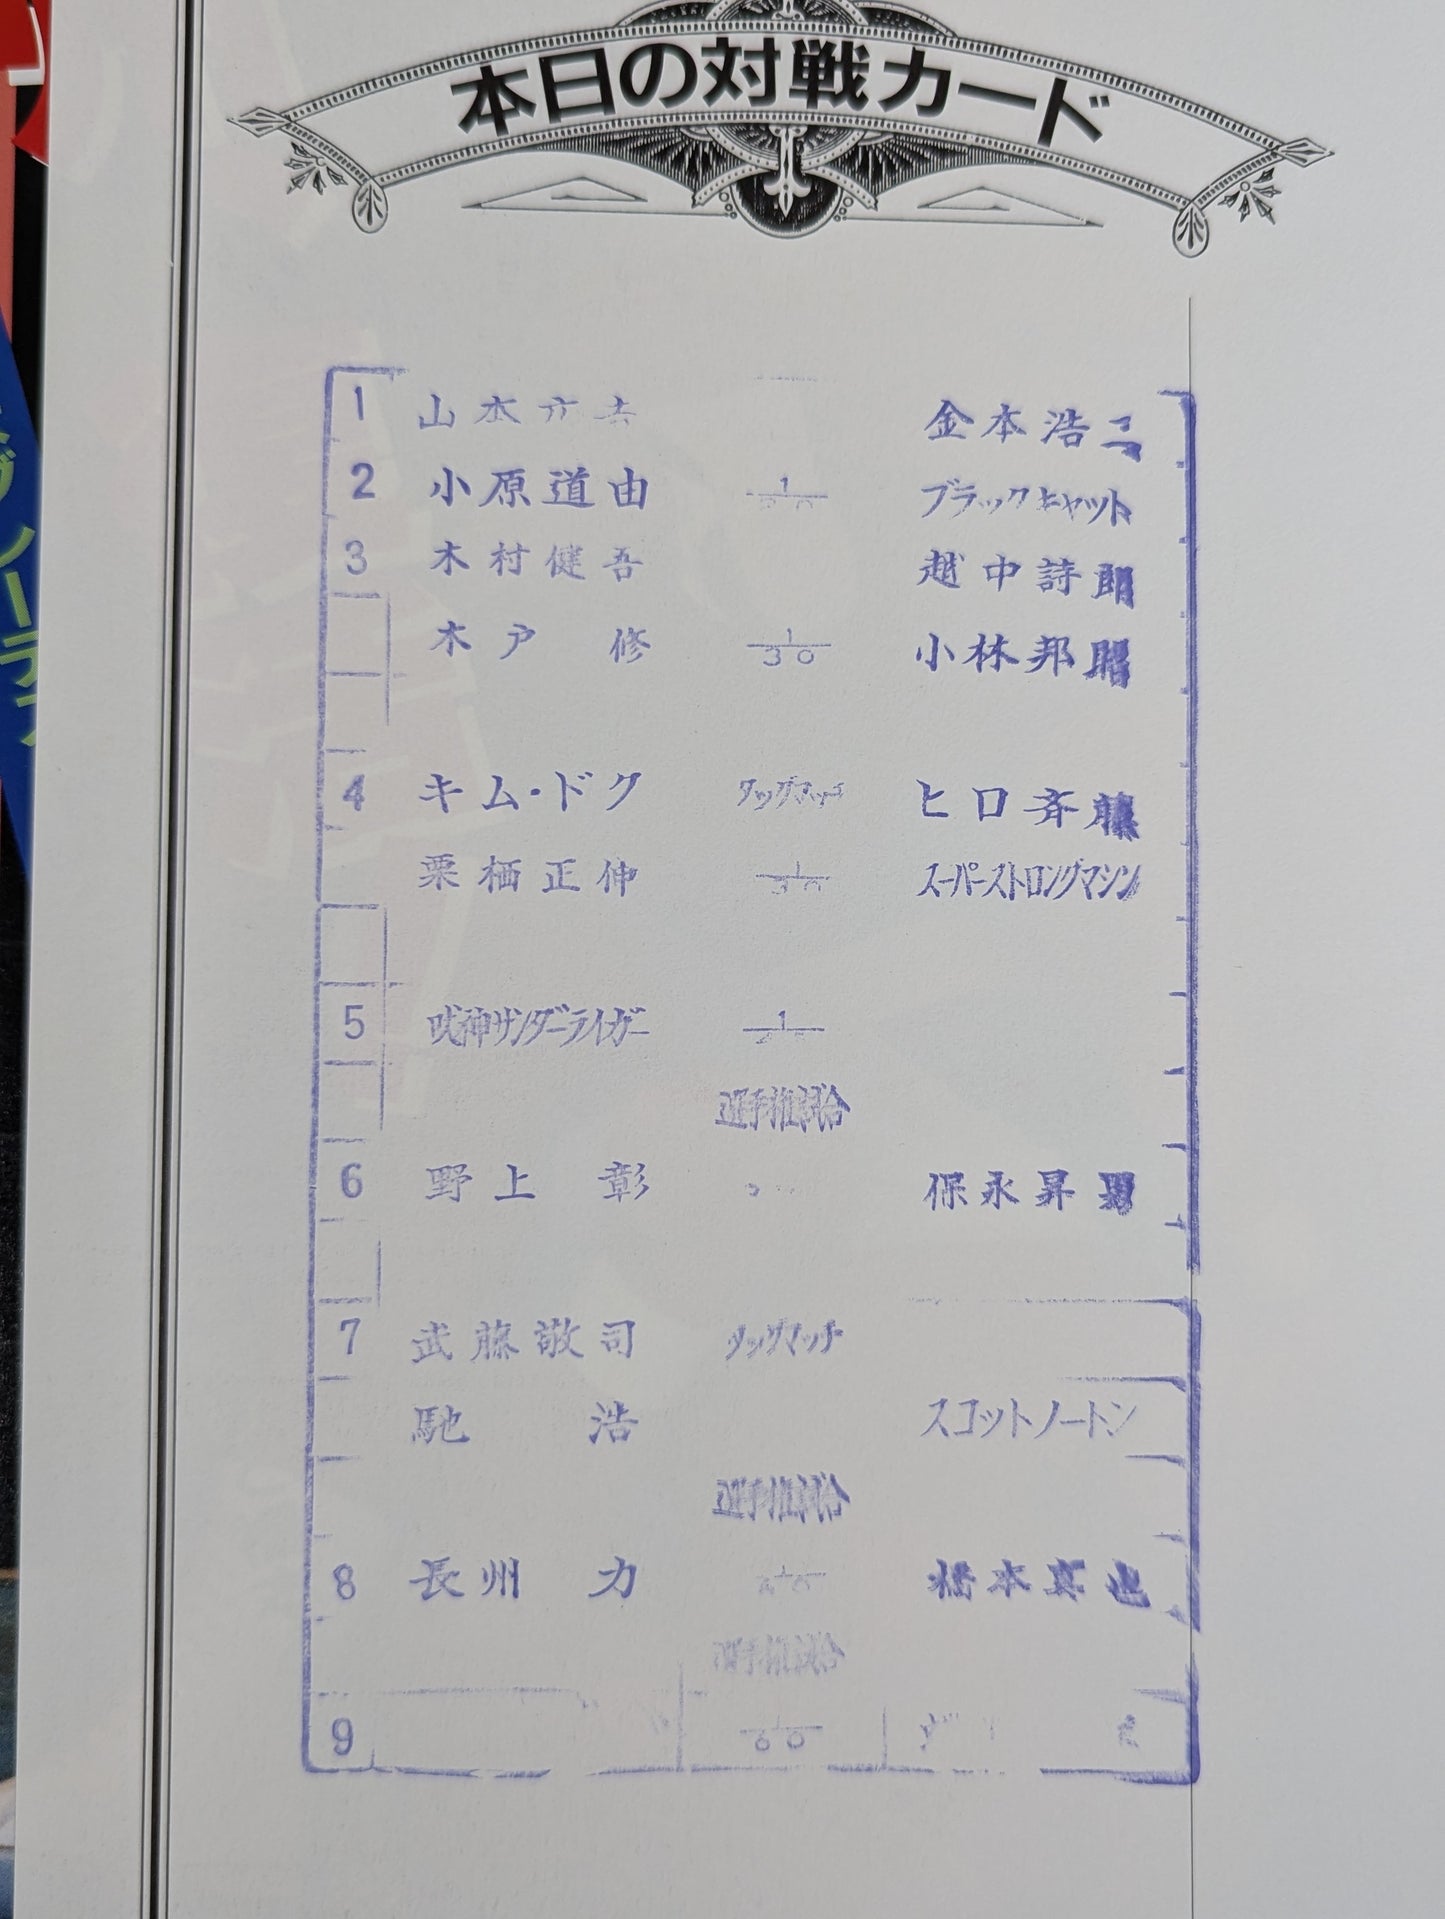 本日の対戦カード
1 山本 金本浩二
2 小原道由 1 ブラックキャット
3 木村健吾 越中詩郎
木戸 修 1/30 小林邦昭
4 キム・ドク タッグマッチ ヒロ斉藤
栗栖正伸 1/30 スーパーストロングマシン
5 獣神サンダーライガー 1
選手権試合
6 野上 彰 保永昇男
7 武藤敬司 タッグマッチ
馳 浩 スコットノートン
選手権試合
8 長州 力 橋本真也
選手権試合
9 60